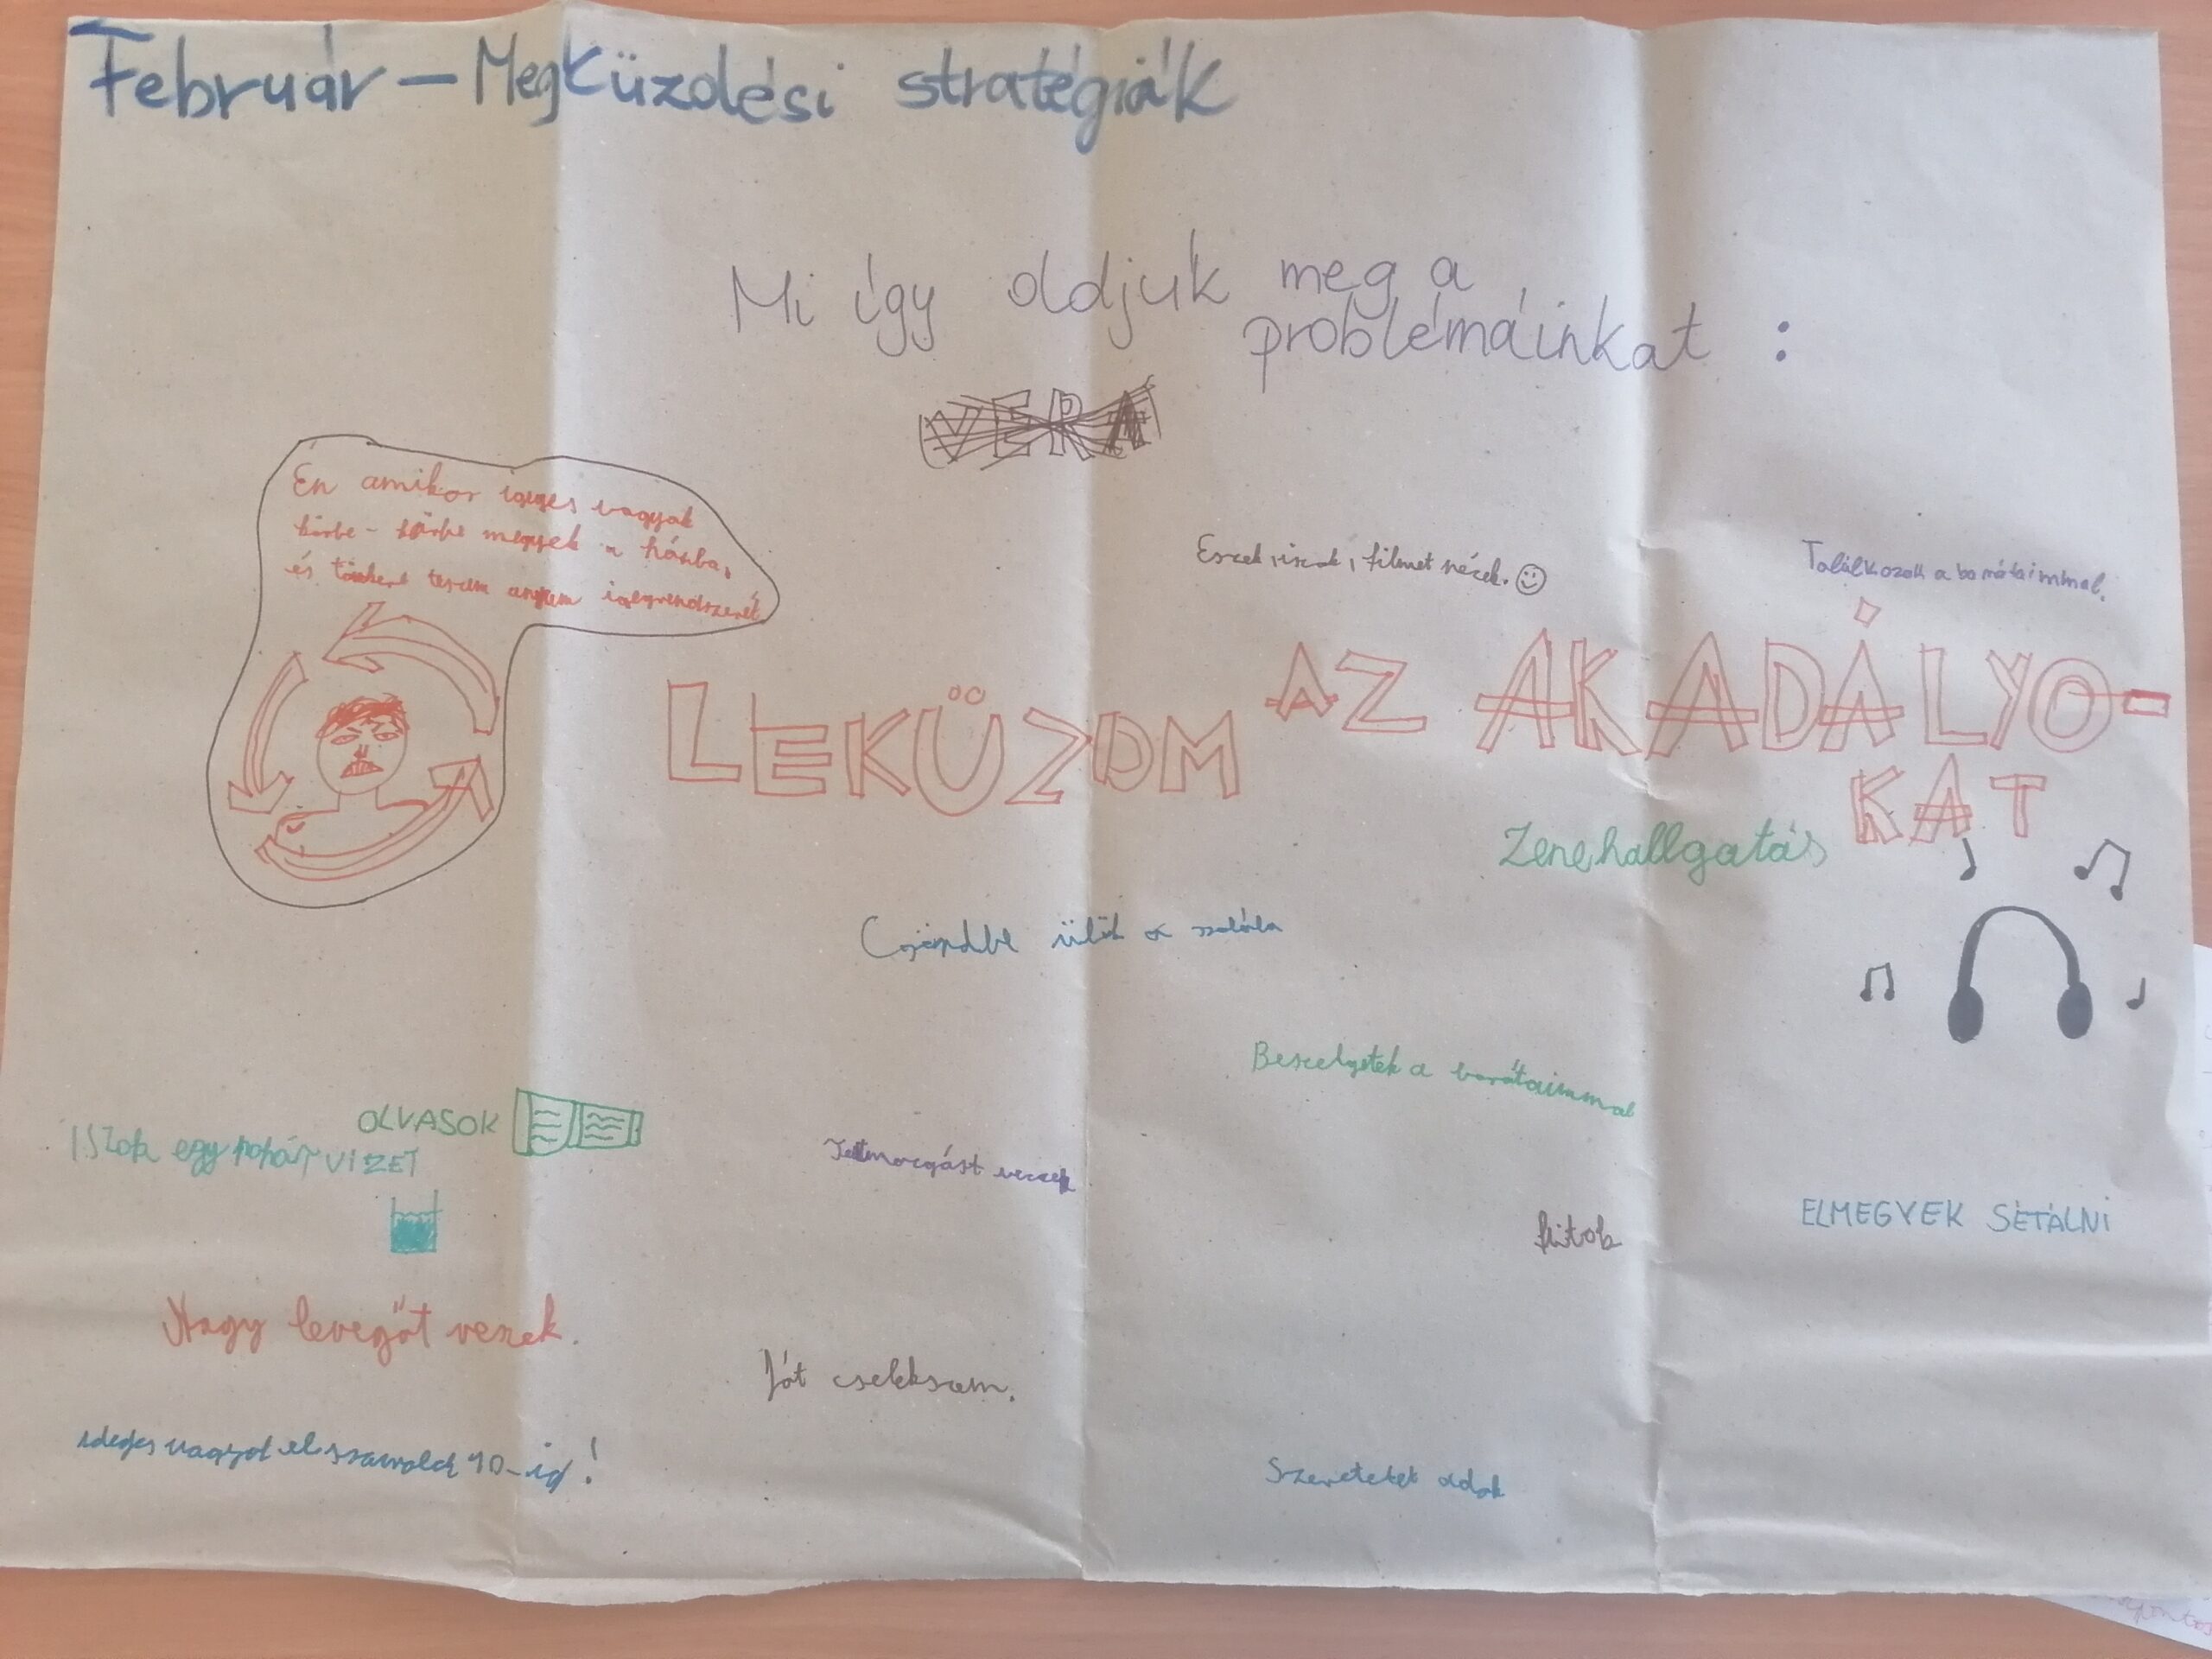 Február – Megküzdési stratégiák
Mi így oldjuk meg a
problémáinkat :
VERA
Én amikor vagyok
körbe - körbe megyek a házba,
és teszem anyum idegrendszerét
Eszek, iszok, filmet nézek.
Találkozok a barátaimmal.
LEKÜZDM AZ AKADÁLYO-
KAT
Zenehallgatás
Csöndbe ülök a szobába
Beszelgetek a barátaimmal
OLVASOK
ISzok egy pohár VIZET
veszek
futok
ELMEGYEK SÉTÁLNI
Nagy levegőt veszek.
Jót cselekszem.
ideges vagyol el szamolok 10-ig!
Szeretetet adok